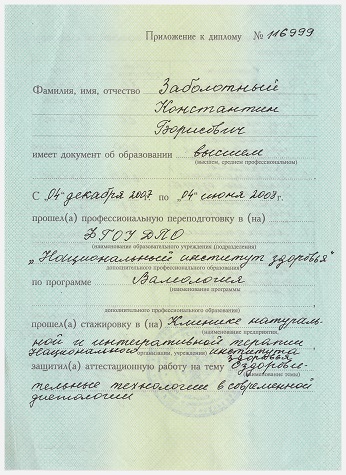 Приложение к диплому № 116999
Фамилия, имя, отчество Заболотный
Константин
Борисович
имеет документ об образовании высшем
(высшем, среднем профессиональном)
С „04“ декабря 2007 г. по „04“ июня 2008 г.
прошел(а) профессиональную переподготовку в (на)
ФГОУ ДПО
(наименование образовательного учреждения (подразделения)
„Национальный институт здоровья“
дополнительного профессионального образования)
по программе Валеология
(наименование программы
дополнительного профессионального образования)
прошел(а) стажировку в (на) Клинике натураль-
(наименование предприятия,
ной и интегративной терапии
Национального института
организации, учреждения)
здоровья
защитил(а) аттестационную работу на тему Оздорови-
(наименование темы)
тельные технологии в современной
диетологии